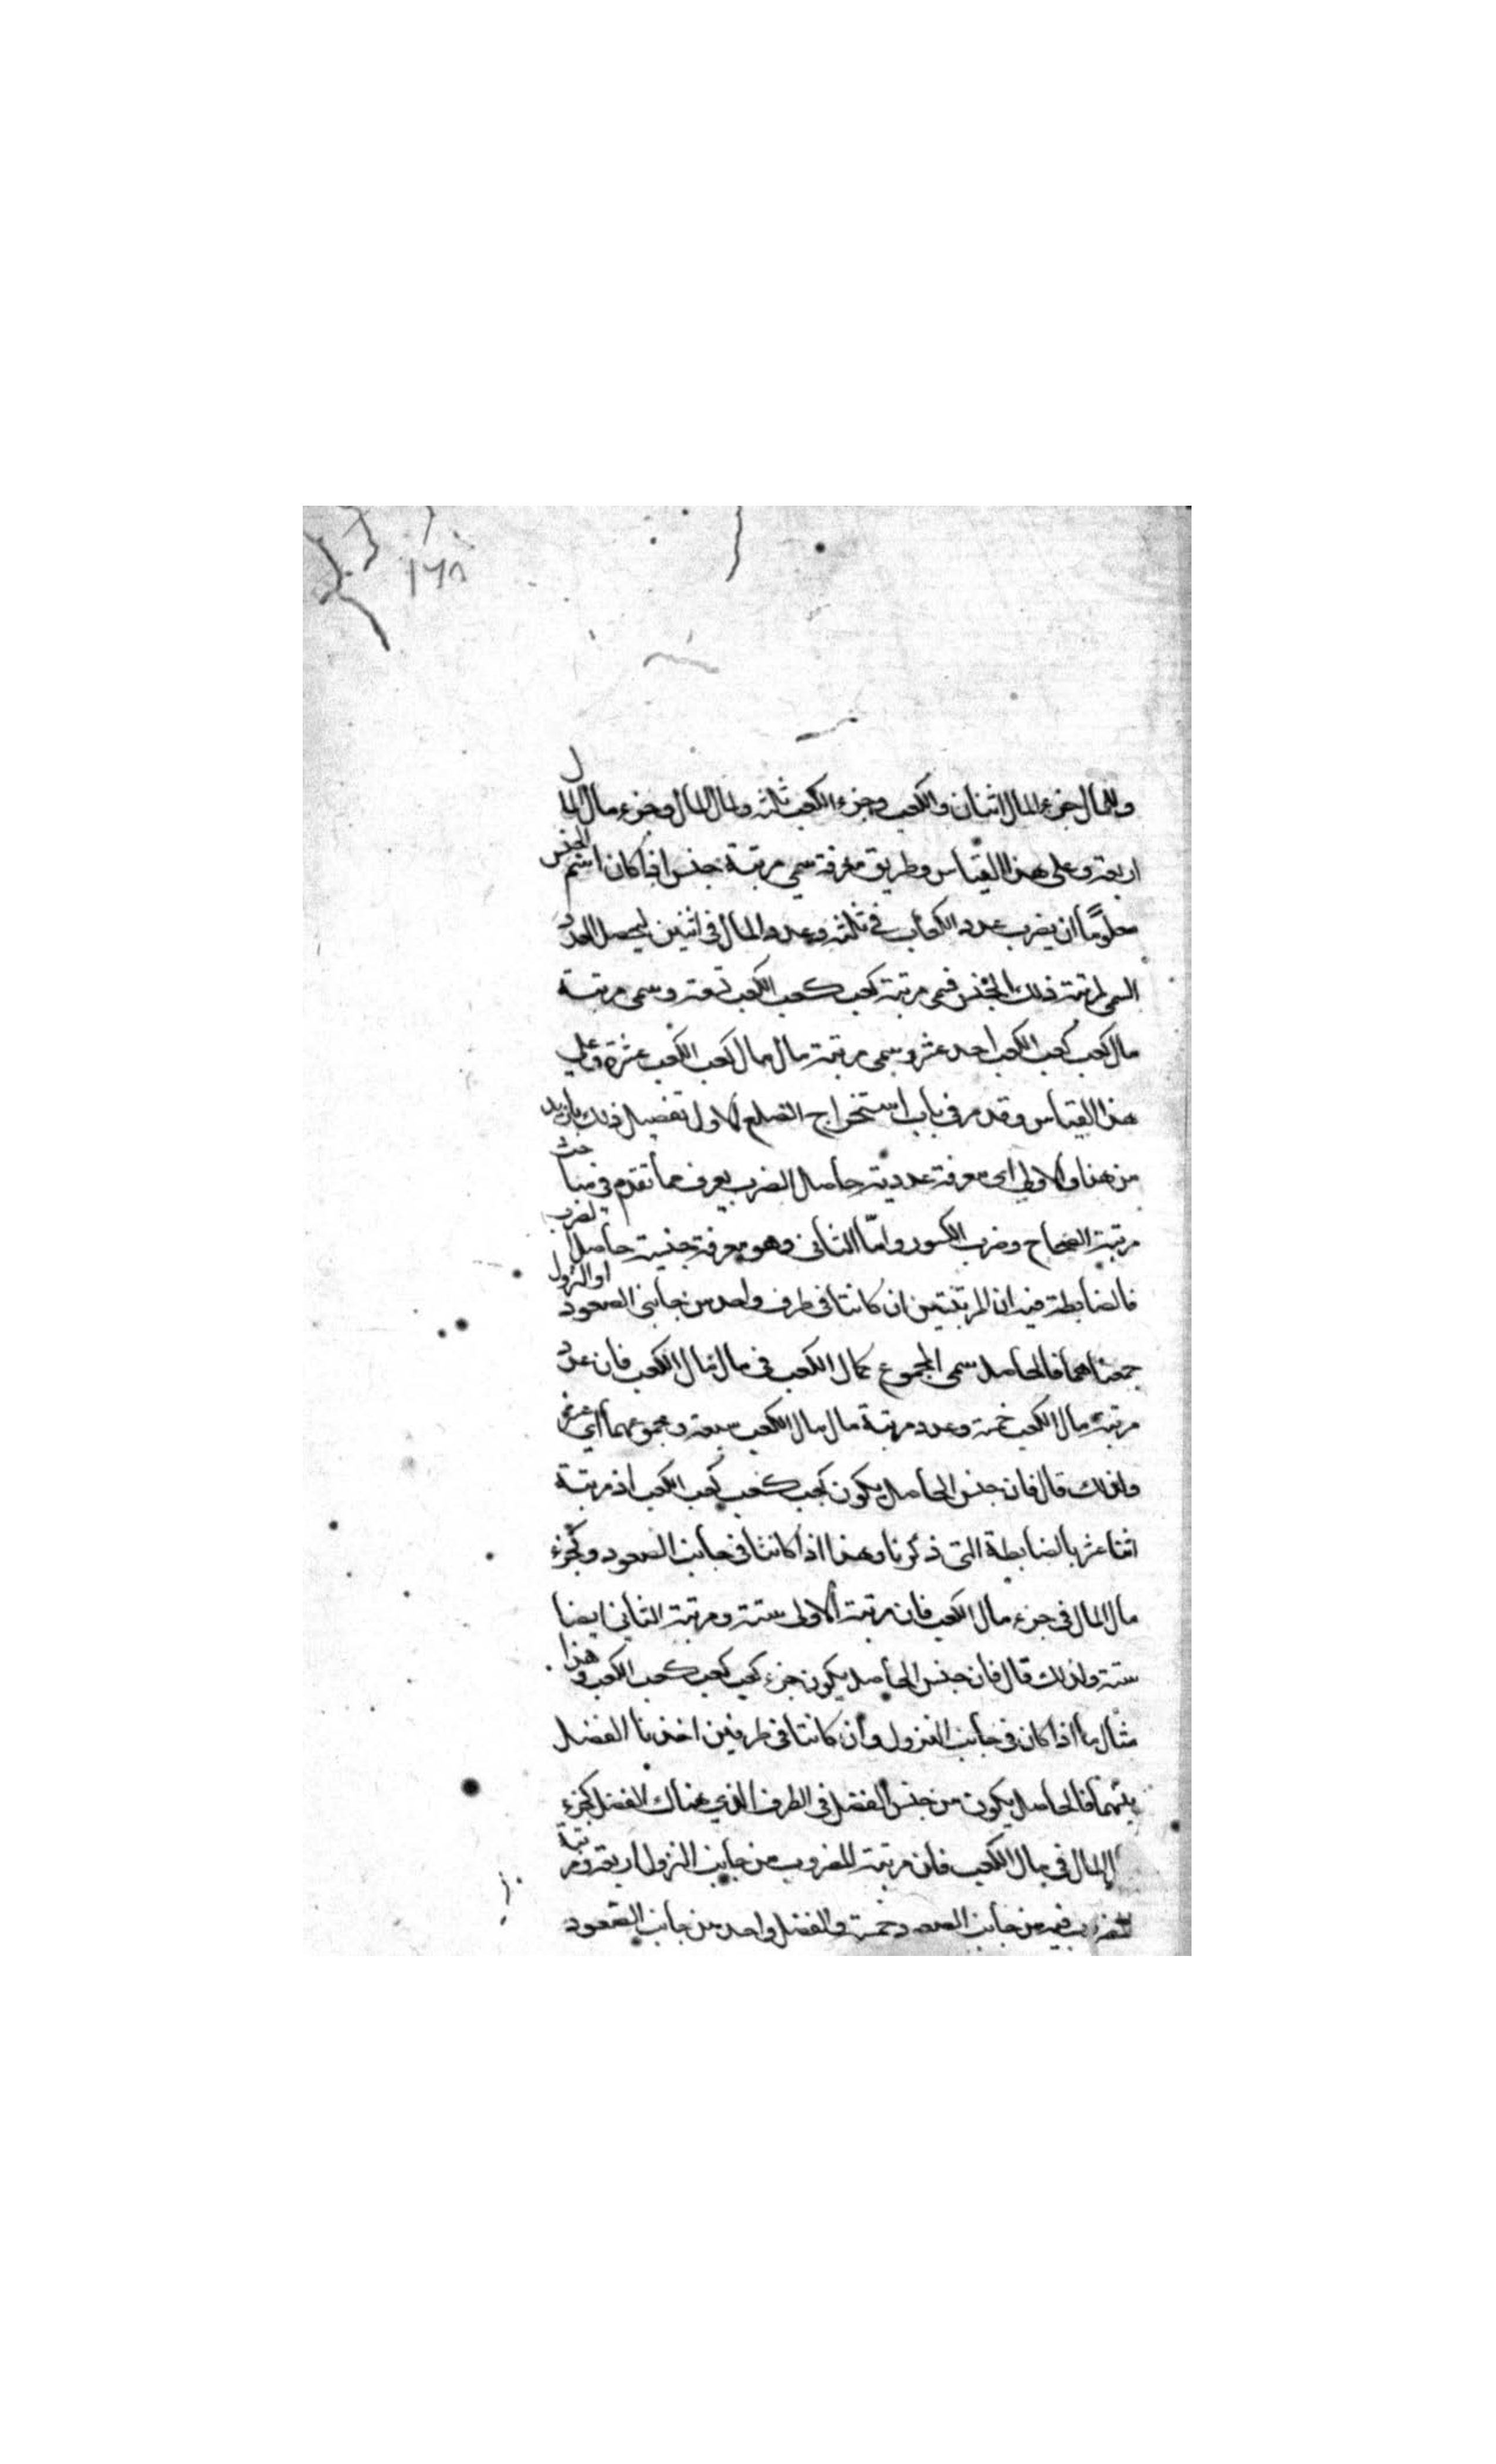 ١٦٨
وللمال جزء المال اثنان والكعب وجزء الكعب ثلثة ولمال المال وجزء مال المال
اربعة وعلى هذا القياس وطريق معرفة سمى مرتبة جنس اذا كان اسم الجنس
معلومًا ان يضرب عدد الكعاب في ثلثة وعدد المال في اثنين ليحصل العدد
السمى لمرتبة ذلك الجنس فسمى مرتبة كعب كعب الكعب تسعة وسمى مرتبة
مال كعب كعب الكعب احد عشر وسمى مرتبة مال مال كعب الكعب عشرة وعلى
هذا القياس وقد مر في باب استخراج الضلع الاول تفصيل ذلك بازيد
من هنا والاولى اى معرفة عددية حاصل الضرب يعرف مما تقدم في مباحث
مرتبة الصحاح وضرب الكسور وامّا الثانى وهو معرفة جنسية حاصل الضرب
فالضابطة فيه ان المرتبتين ان كانتا في طرف واحد من جانبى الصعود او النزول
جمعناهما فالحاصل سمى المجموع كمال الكعب في مال مال الكعب فان عدد
مرتبة مال الكعب خمسة وعدد مرتبة مال مال الكعب سبعة ومجموعهما اثنى عشر
ولذلك قال فان جنس الحاصل يكون كعب كعب كعب الكعب اذ مرتبة
اثنا عشر بالضابطة التى ذكرنا وهذا اذا كانتا في جانب الصعود وكجزء
مال المال في جزء مال الكعب فان مرتبة الاولى ستة ومرتبة الثانى ايضا
ستة ولذلك قال فان جنس الحاصل يكون جزء كعب كعب كعب الكعب وهذا
مثال ما اذا كان في جانب النزول وان كانتا في طرفين اخذنا الفضل
بينهما فالحاصل يكون من جنس الفضل في الطرف الذي هناك الفضل كجزء
المال في مال الكعب فان مرتبة المضروب من جانب النزول اربعة ومرتبة
المضروب فيه من جانب الصعود خمسة والفضل واحد من جانب الصعود